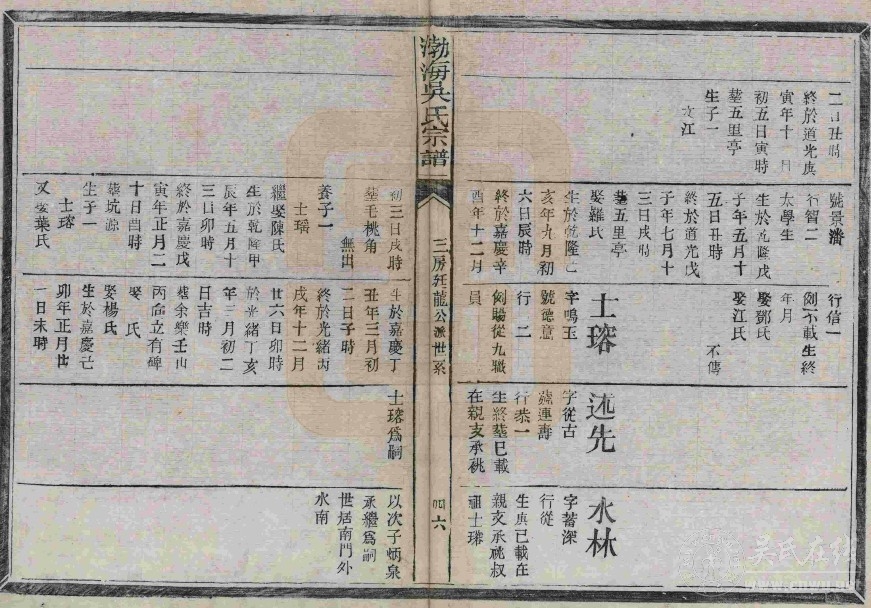 二日丑時
終於道光庚
寅年十一月
初五日寅時
塟五里亭
生子一
文江
號景濤
行智二
太學生
生於乾隆戊
子年五月十
五日丑時
終於道光戊
子年七月十
三日戌時
塟五里亭
娶羅氏
生於乾隆己
亥年九月初
六日辰時
終於嘉慶辛
酉年十二月
行信一
例不載生終
年月
娶鄧氏
娶江氏
不傳
士瑢
字鳴玉
號德意
行二
例賜從九職
員
述先
字從古
號連壽
行恭一
生終塟已載
在親支承祧
水林
字蓄深
行從
生庚已載在
親支承祧叔
祖士瑢
渤海吳氏宗譜
三房廷龍公派世系
四六
初三日戌時
塟毛桃角
無出
養子一
士瑶
繼娶陳氏
生於乾隆甲
辰年五月十
三日卯時
終於嘉慶戊
寅年正月二
十日酉時
塟坑源
生子一
士瑢
又娶葉氏
生於嘉慶丁
丑年三月初
二日子時
終於光緒丙
戌年十二月
廿六日卯時
於光緒丁亥
年三月初二
日吉時
塟余樂壬山
丙向立有碑
娶 氏
娶楊氏
生於嘉慶己
卯年正月廿
一日未時
士瑢爲嗣
以次子炳泉
承繼爲嗣
世居南門外
水南
吳氏在線